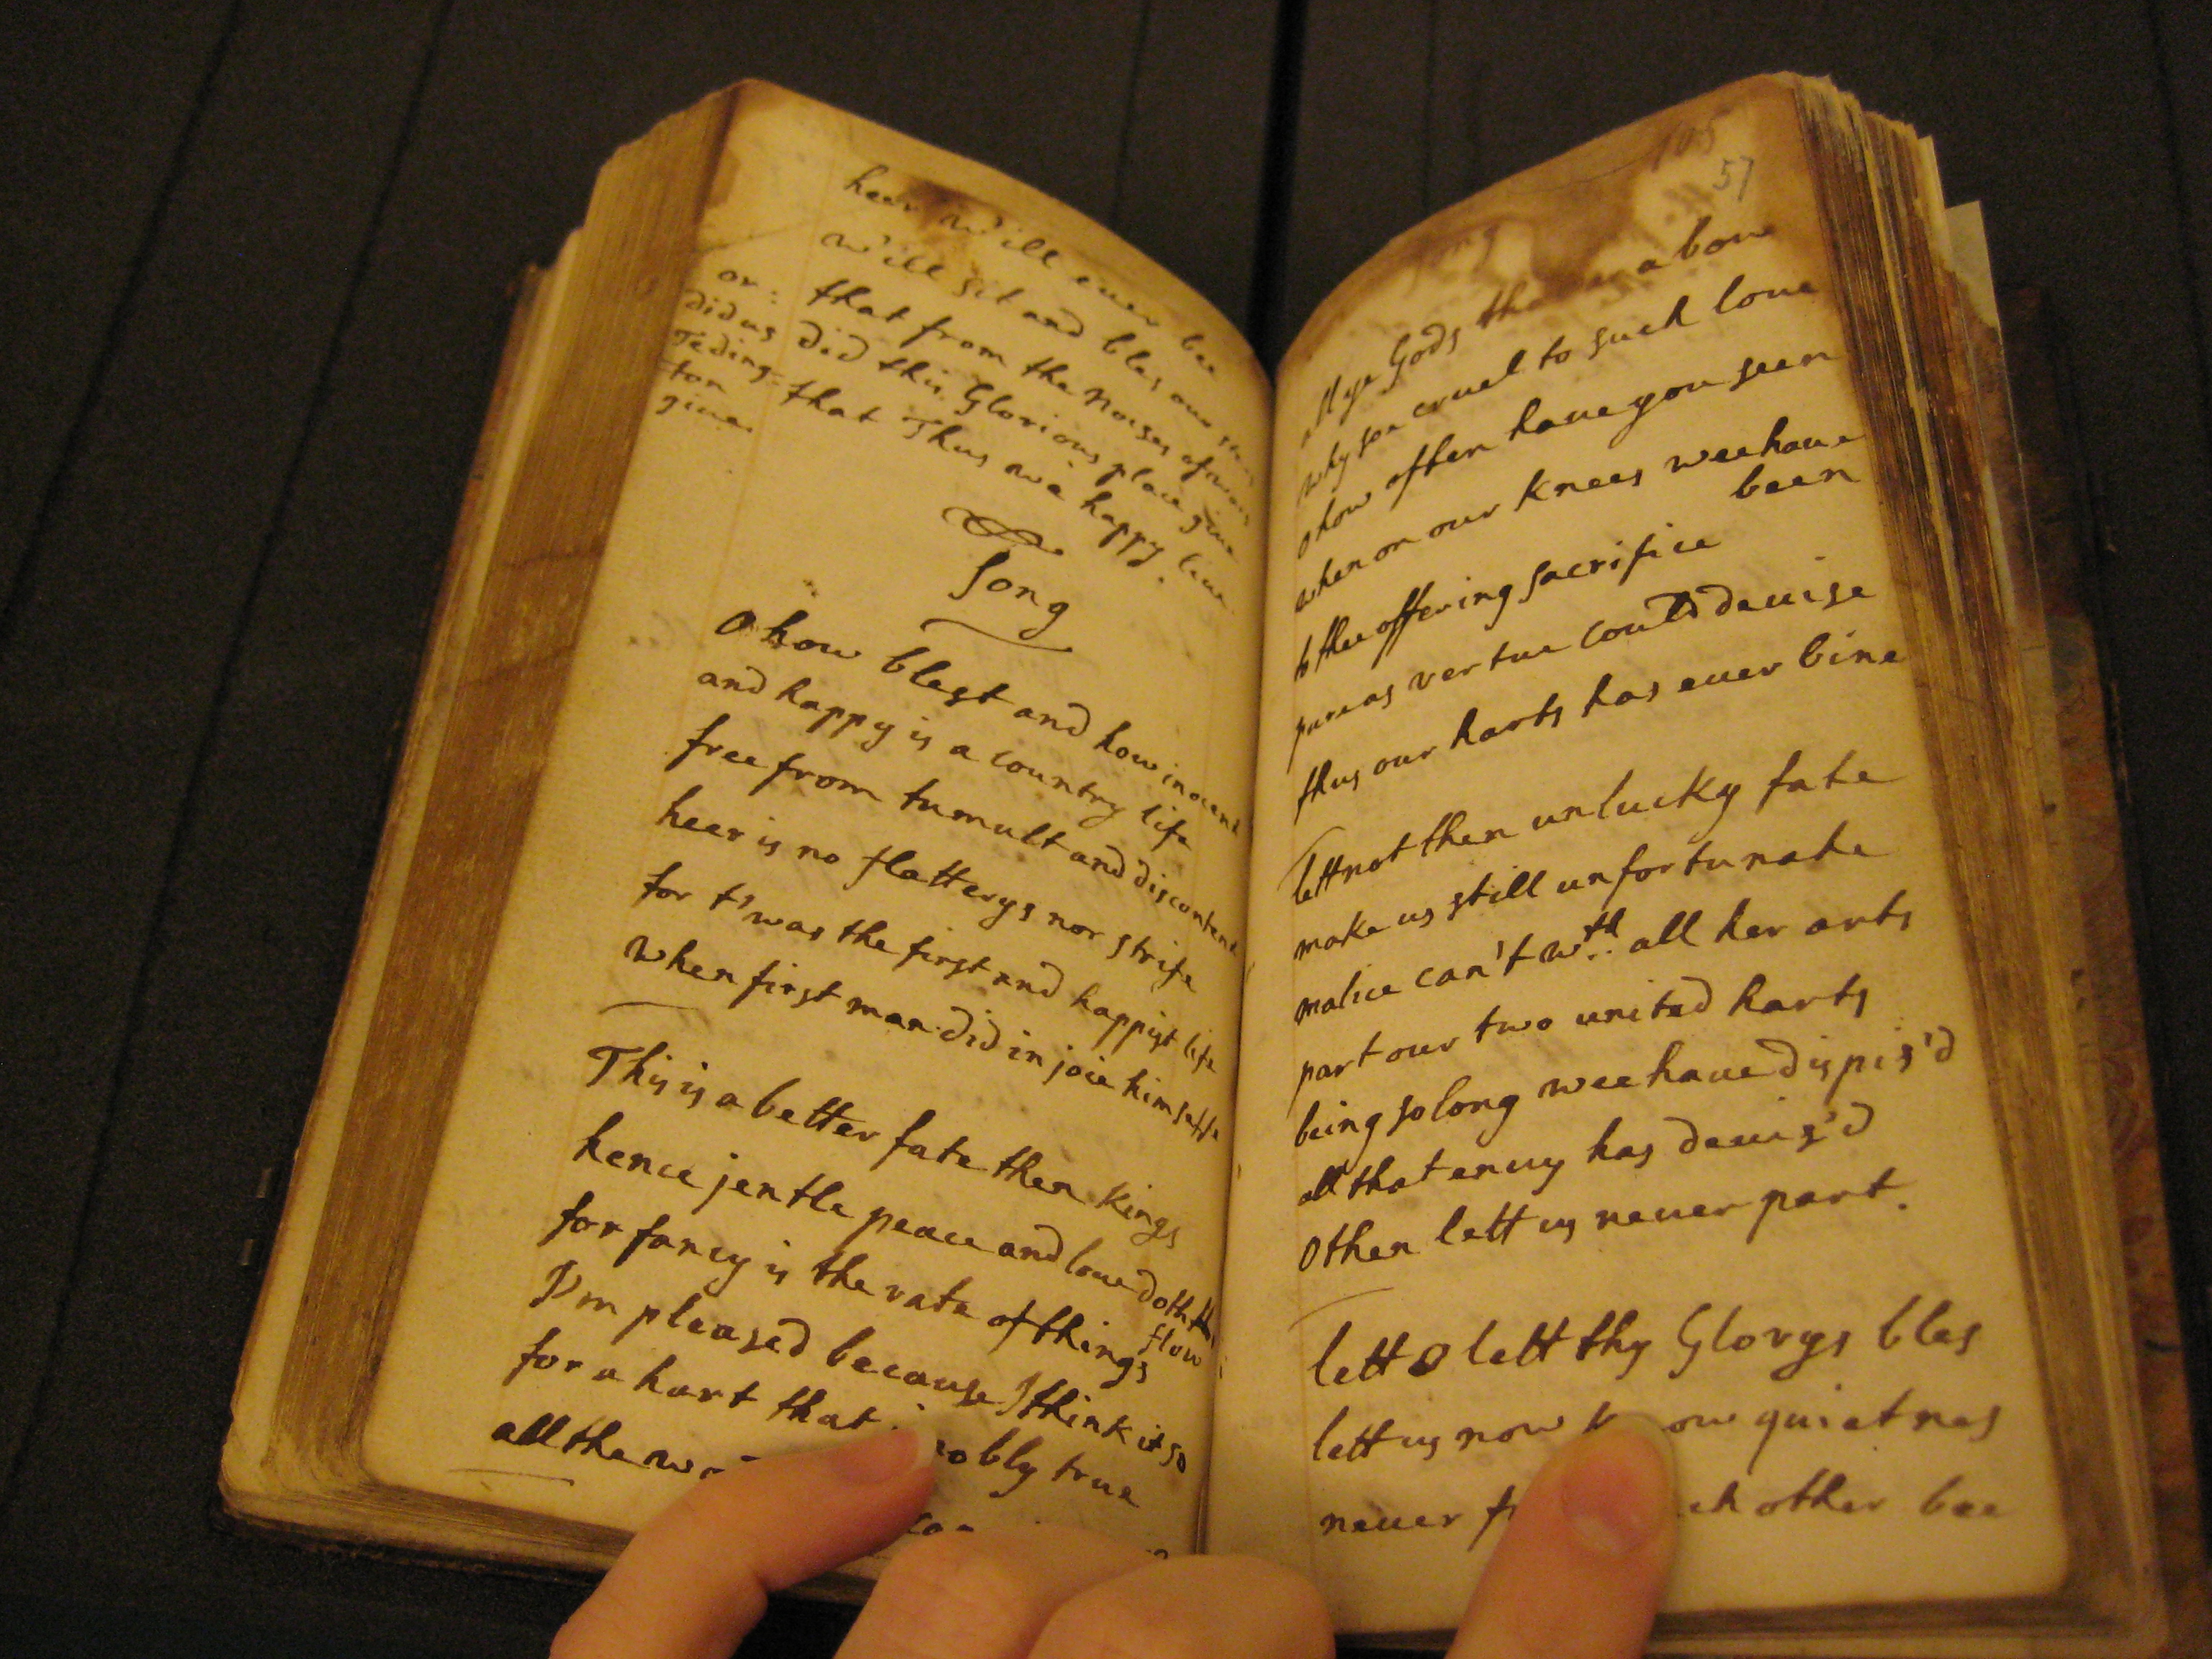 heer will ever bee
will sit and bles our
or: that from the Noises of wars
did us did this Glorious place give
Teding= that Thus we happy live
ton
give.
Song
O how blest and how inocent
and happy is a country life
free from tumult and discontent
heer is no flatterys nor strife
for t'was the first and happist life
when first man did injoie himselfe
This is a better fate then Kings
hence jentle peace and love doth
flow
for fancy is the rate of things
I'm pleased because I think it so
for a hart that nobly true
all the
105
57
Song
all ye Gods that above
why soe cruel to such love
O how often have you seen
when on our Knees wee have
been
to thee offering sacrifice
pure as vertue could devise
thus our harts has ever bine
lett not then unlucky fate
make us still unfortunate
malice can't wth. all her arts
part our two united harts
being so long wee have dispis'd
all that envy has devis'd
O then lett us never part.
lett O lett thy Glorys bles
lett us now quietnes
never other bee